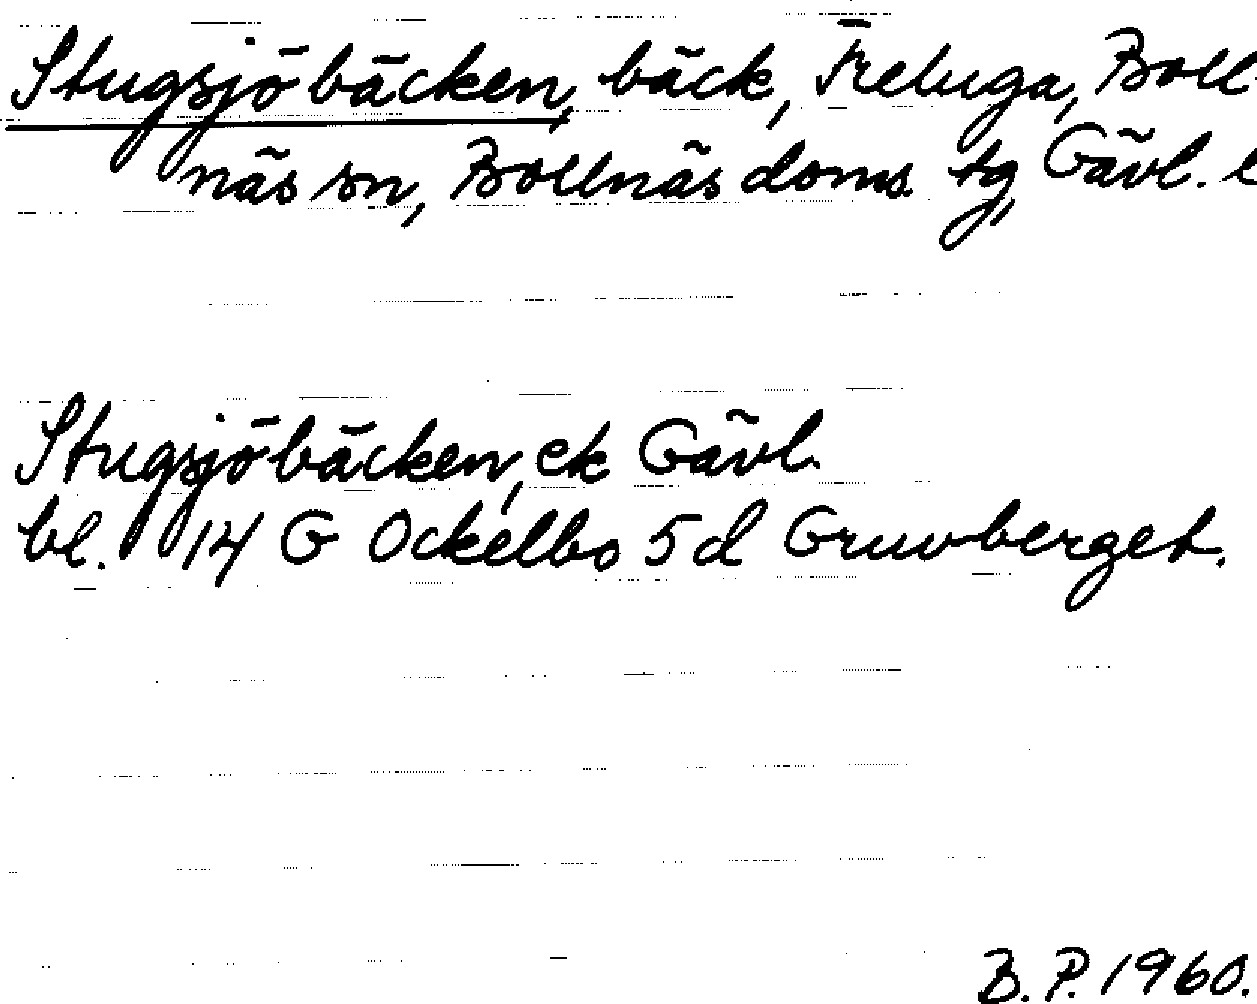 Stugsjöbäcken, bäck, Freluga, Boll-
näs sn, Bollnäs doms. tg, Gävl. l
Stugsjöbäcken, ek Gävl.
bl. 14 G Ockelbo 5d Gruvberget.
B. P. 1960.